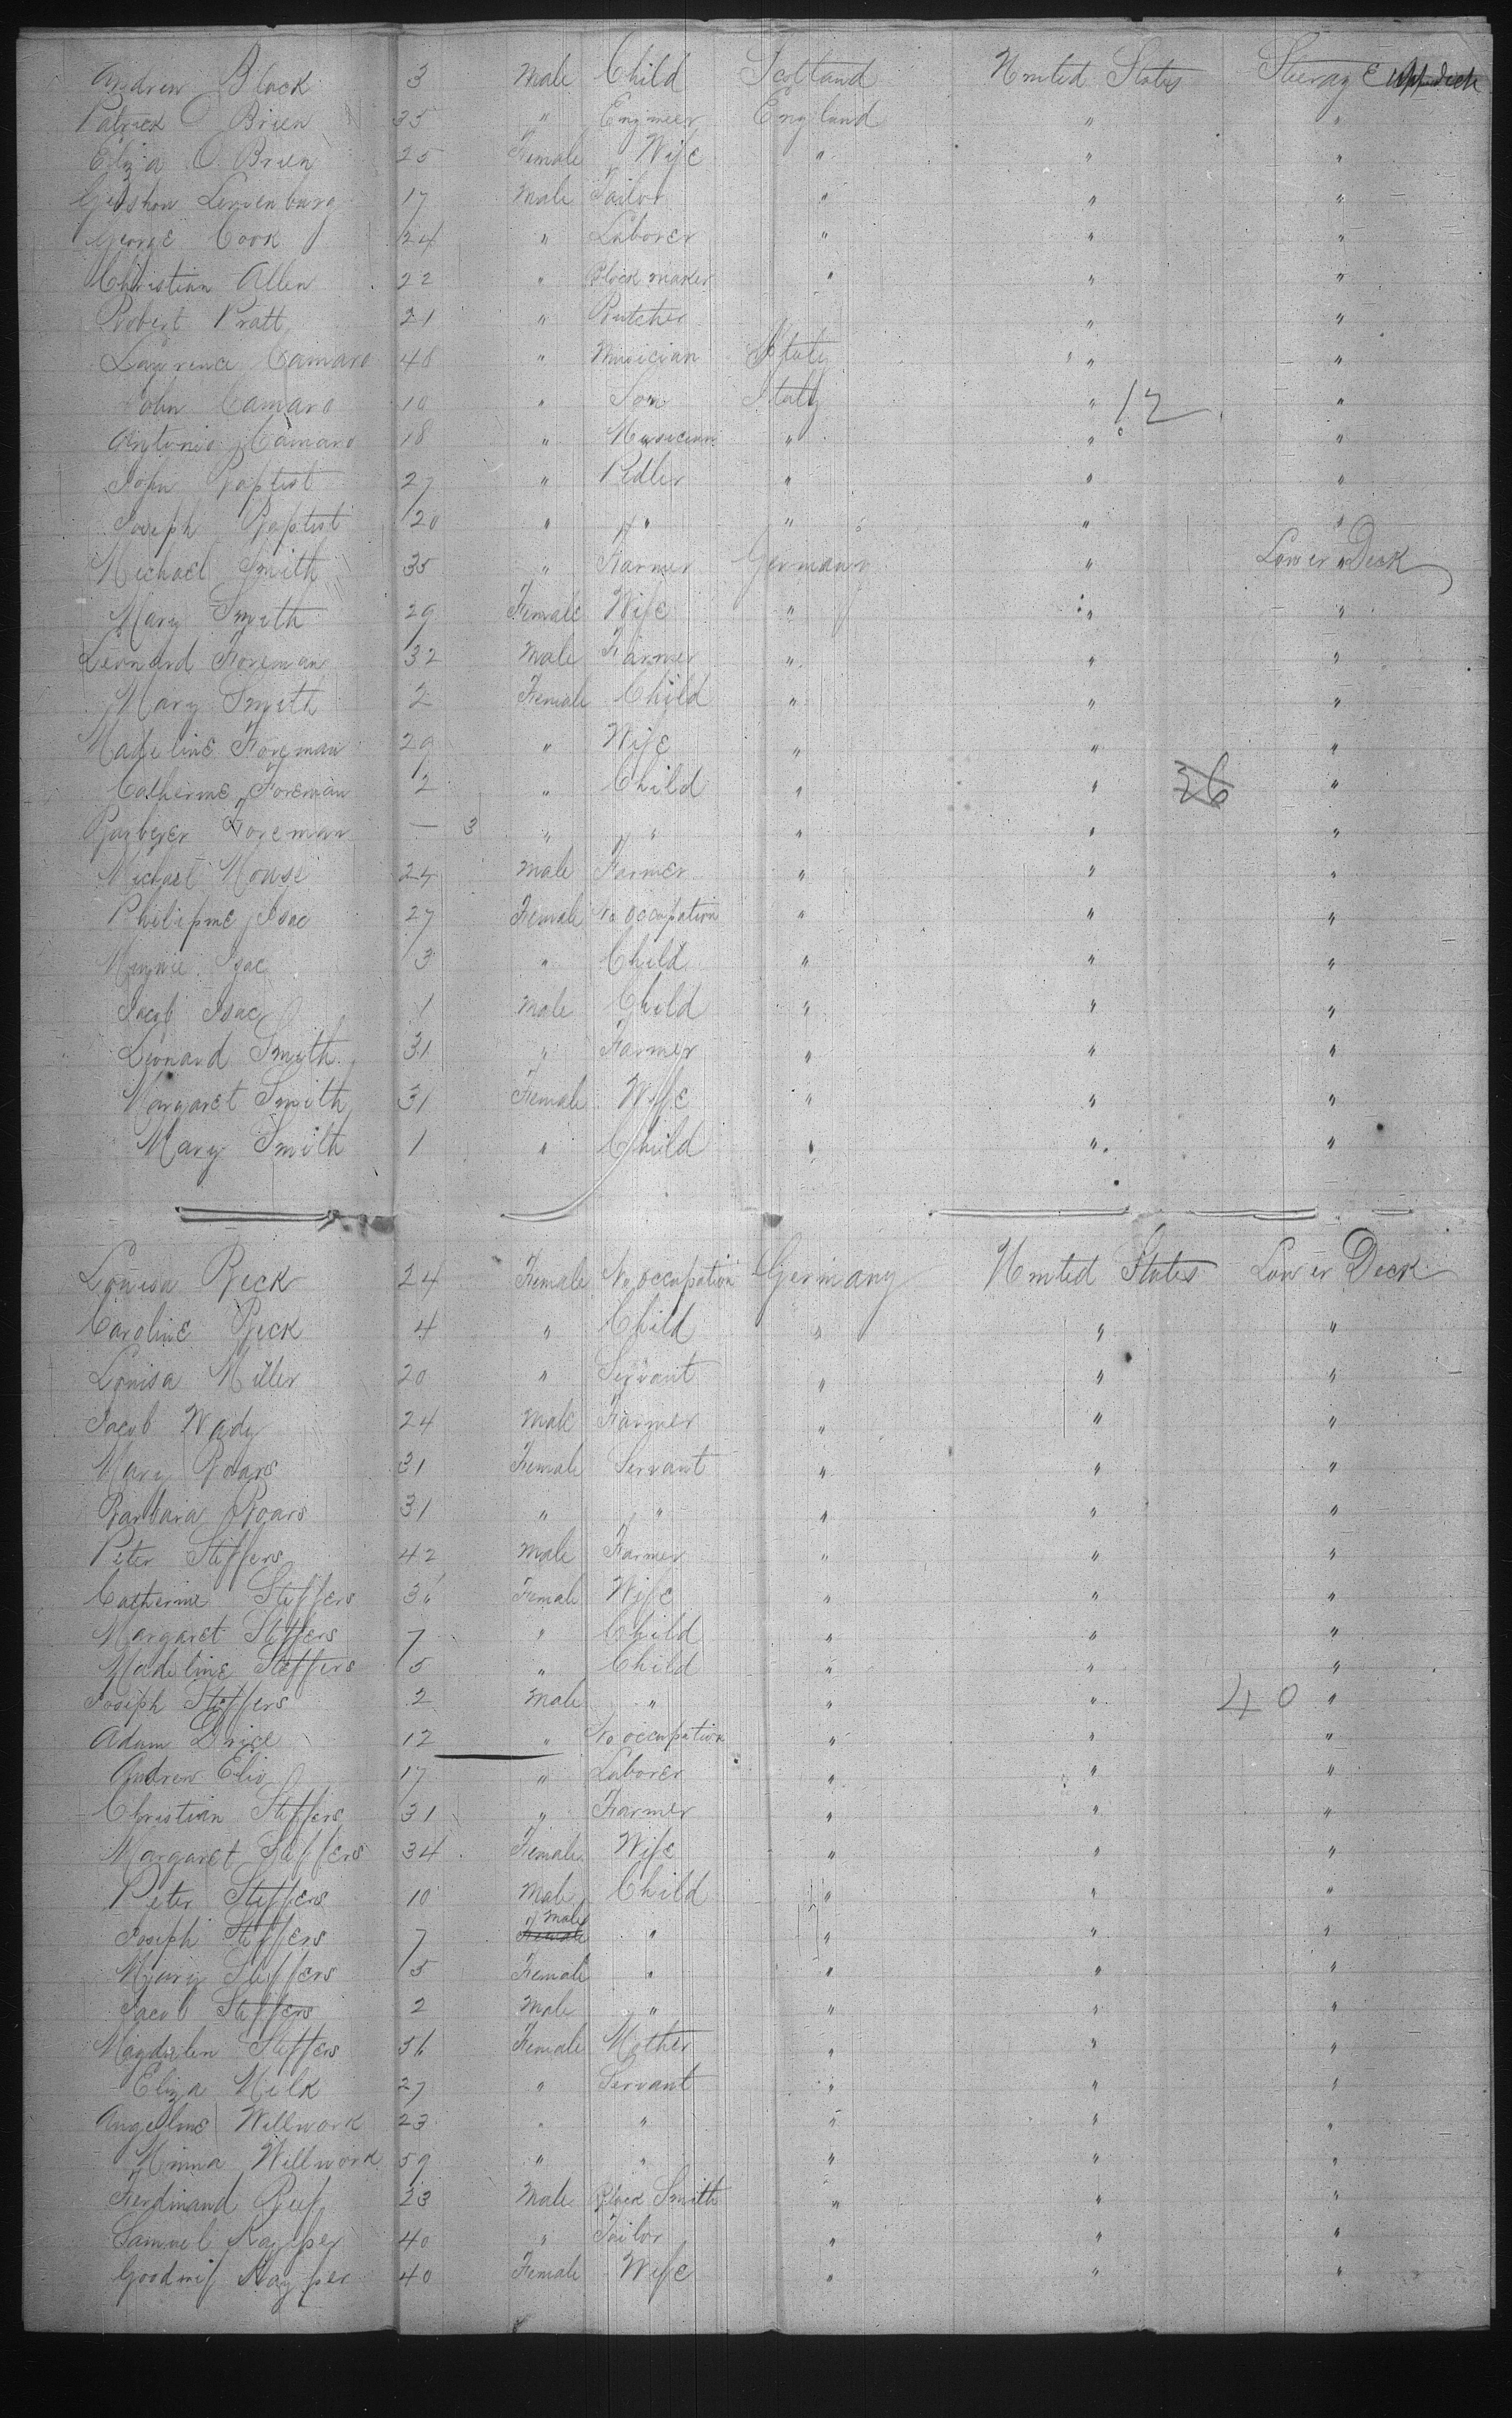 Andrew Black 3 Male Child Scotland United States Steerage Upper deck
Patrick O Brien 35 " Engineer England " "
Eliza O Brien 25 Female Wife " " "
Gershon Levienburg 17 Male Tailor " " "
George Cook 24 " Laborer " " "
Christian Allen 22 " Block maker " " "
Robert Pratt 21 " Butcher " " "
Lawrence Camaro 48 " Musician Italy " "
John Camaro 10 " Son Italy " 12 "
Antonio Camaro 18 " Musician " " "
John Baptist 27 " Pedler " " "
Joseph Baptist 20 " " " " "
Michael Smith 35 " Farmer Germany " Lower Deck
Mary Smith 29 Female Wife " " "
Leonard Foreman 32 Male Farmer " " "
Mary Smith 2 Female Child " " "
Madeline Foreman 29 " Wife " " "
Catherine Foreman 2 " Child " " 26 "
Foreman — 3 " " " " "
Michael House 24 Male Farmer " " "
Philipine Isac 27 Female No occupation " " "
Minnie Isac 3 " Child " " "
Jacob Isac 1 Male Child " " "
Leonard Smith 31 " Farmer " " "
Margaret Smith 31 Female Wife " " "
Mary Smith 1 " Child " " "
Louisa Beck 24 Female No occupation Germany United States Lower Deck
Caroline Beck 4 " Child " " "
Louisa Miller 20 " Servant " " "
Jacob Wady 24 Male Farmer " " "
Mary Boars 31 Female Servant " " "
Barbara Boars 31 " " " " "
Peter Steffers 42 Male Farmer " " "
Catherine Steffers 36 Female Wife " " "
Margaret Steffers 7 " Child " " "
Madeline Steffers 5 " Child " " "
Joseph Steffers 2 Male " " " 40 "
Adam Brice 12 " No occupation " " "
Andrew Elig 17 " Laborer " " "
Christian Steffers 31 " Farmer " " "
Margaret Steffers 34 Female Wife " " "
Peter Steffers 10 Male Child " " "
Joseph Steffers 7 Male " " " "
Mary Steffers 5 Female " " " "
Jacob Steffers 2 Male " " " "
Magdalen Steffers 56 Female Mother " " "
Eliza Milk 27 " Servant " " "
Angeline Willwork 23 " " " " "
Minna Willwork 59 " " " " "
Ferdinand Beef 23 Male Black Smith " " "
Samuel Kayper 40 " Tailor " " "
Kayper 40 Female Wife " " "